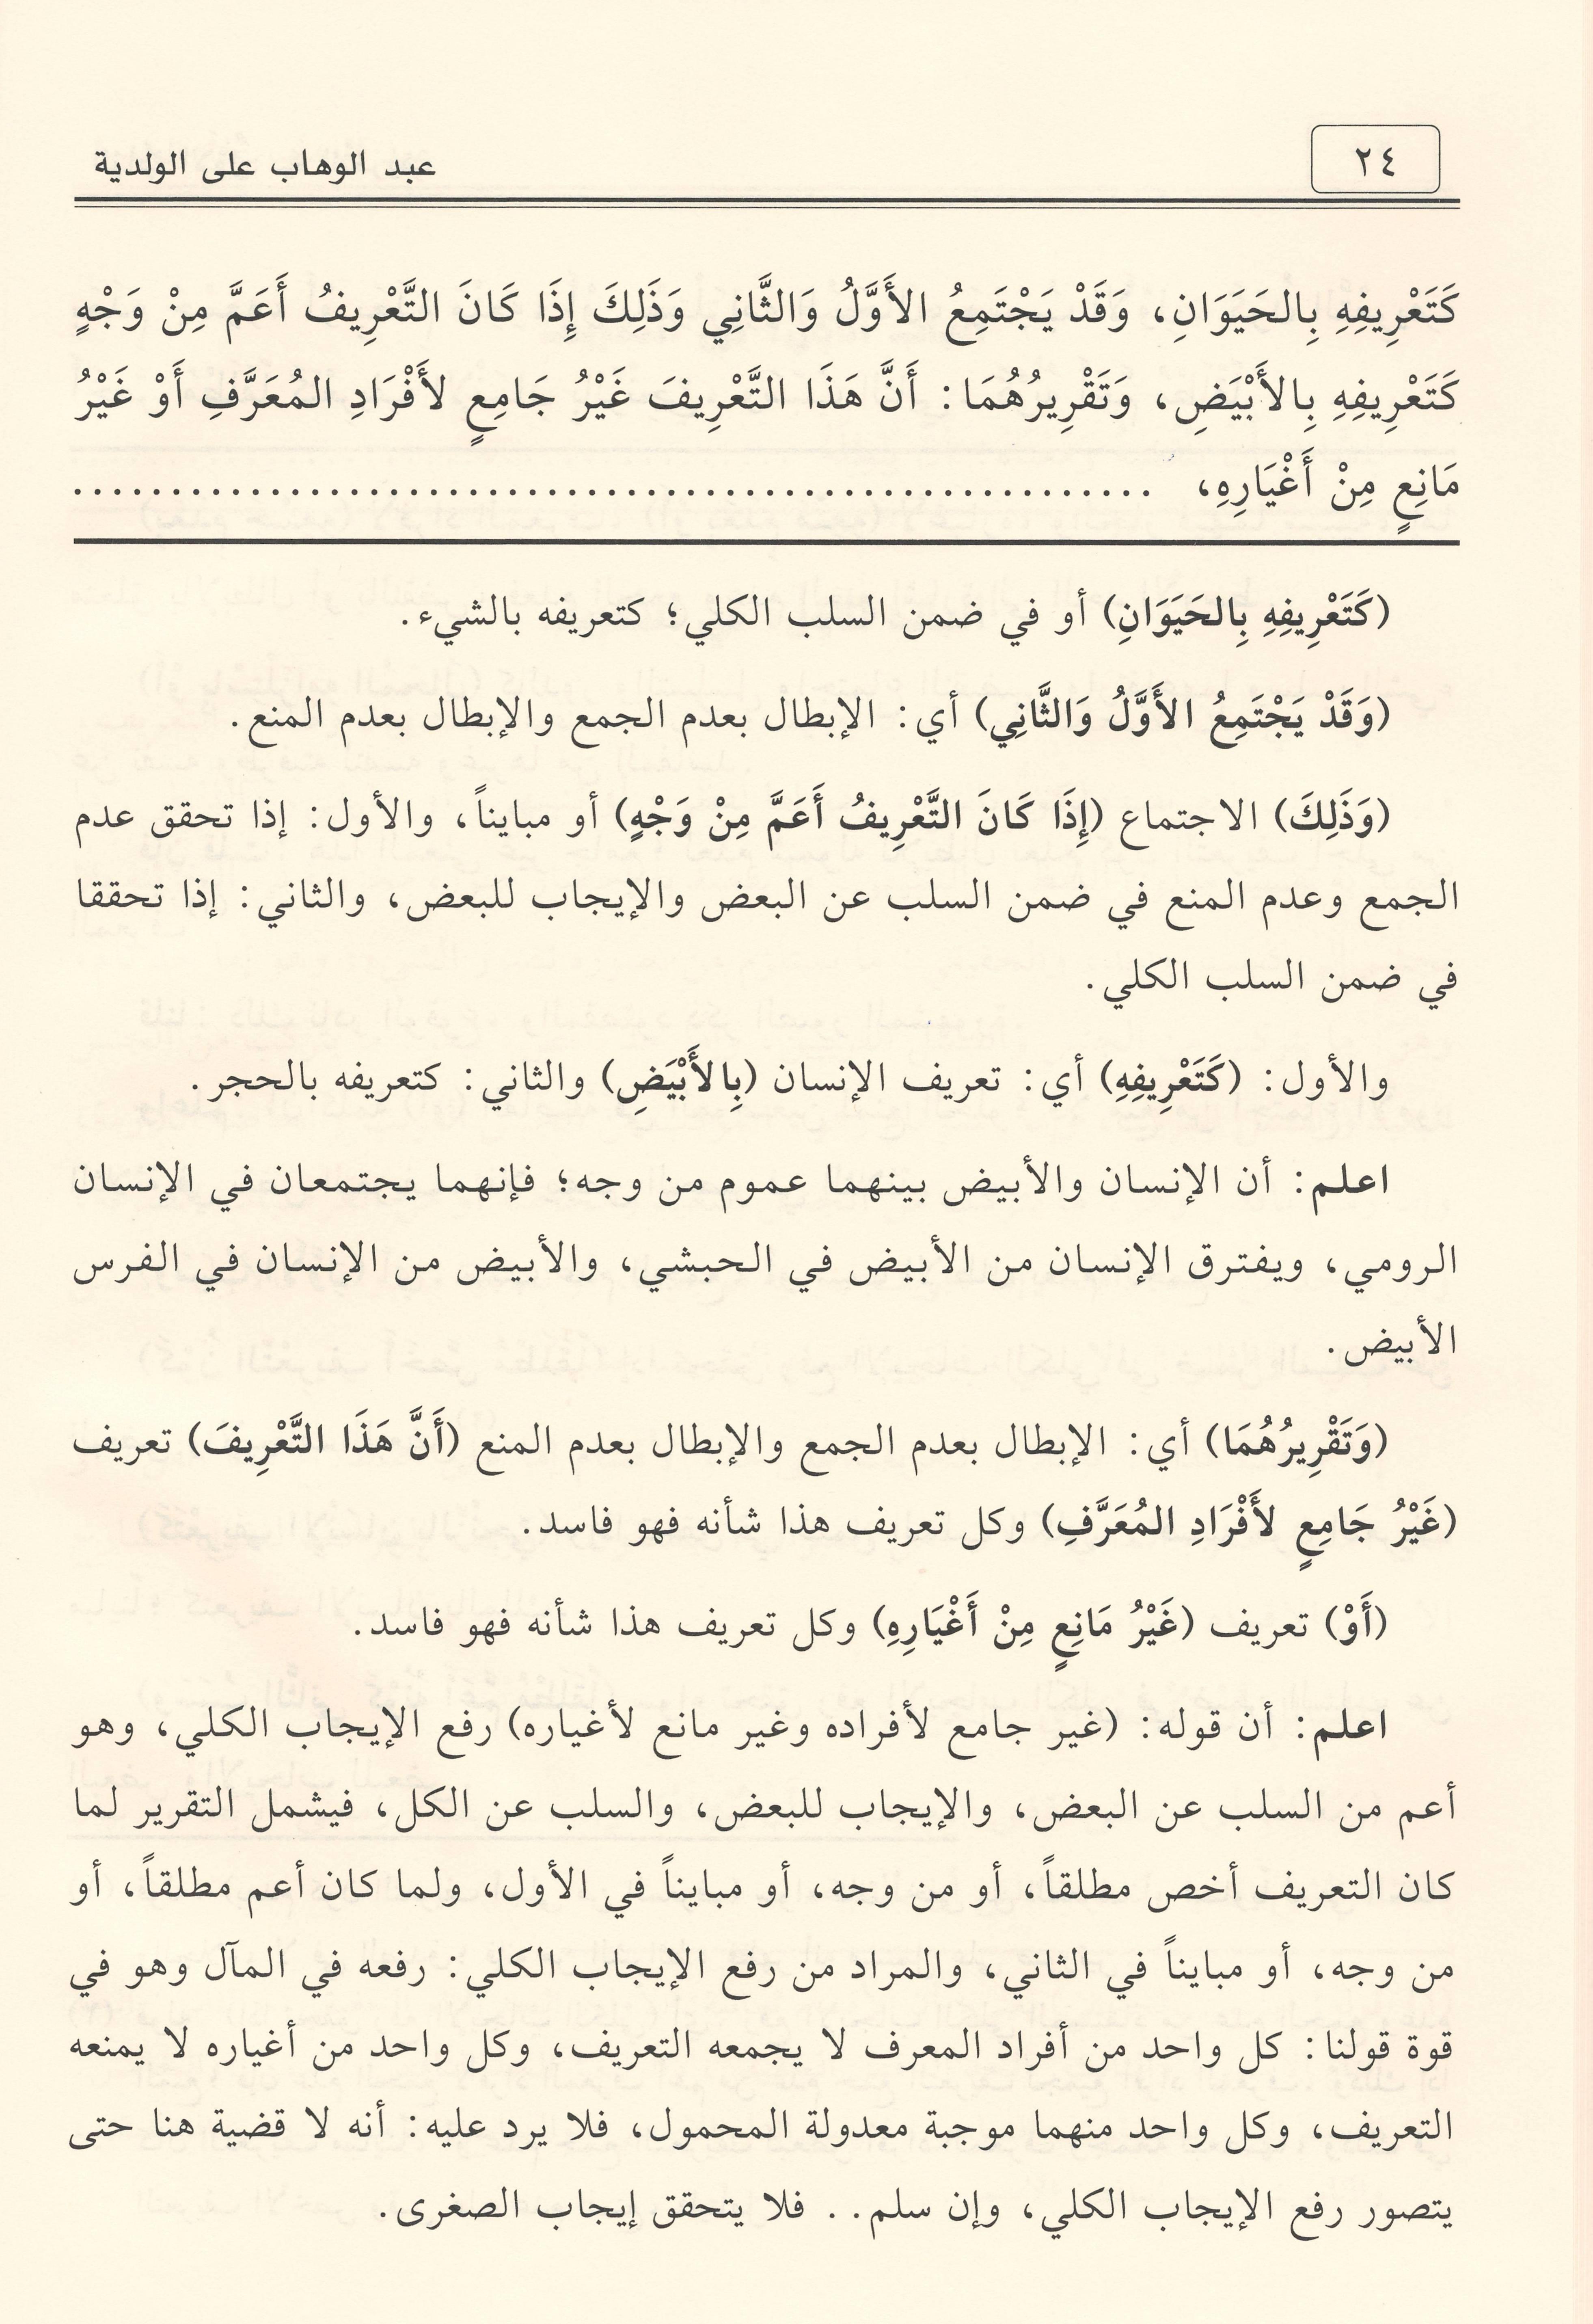 ٢٤
عبد الوهاب على الولدية
كَتَعْرِيفِهِ بِالحَيَوَانِ، وَقَدْ يَجْتَمِعُ الأَوَّلُ وَالثَّانِي وَذَلِكَ إِذَا كَانَ التَّعْرِيفُ أَعَمَّ مِنْ وَجْهٍ
كَتَعْرِيفِهِ بِالأَبْيَضِ، وَتَقْرِيرُهُمَا: أَنَّ هَذَا التَّعْرِيفَ غَيْرُ جَامِعٍ لأَفْرَادِ المُعَرَّفِ أَوْ غَيْرُ
مَانِعٍ مِنْ أَغْيَارِهِ، ......................................................
(كَتَعْرِيفِهِ بِالحَيَوَانِ) أو في ضمن السلب الكلي؛ كتعريفه بالشيء.
(وَقَدْ يَجْتَمِعُ الأَوَّلُ وَالثَّانِي) أي: الإبطال بعدم الجمع والإبطال بعدم المنع.
(وَذَلِكَ) الاجتماع (إِذَا كَانَ التَّعْرِيفُ أَعَمَّ مِنْ وَجْهٍ) أو مبايناً، والأول: إذا تحقق عدم
الجمع وعدم المنع في ضمن السلب عن البعض والإيجاب للبعض، والثاني: إذا تحققا
في ضمن السلب الكلي.
والأول: (كَتَعْرِيفِهِ) أي: تعريف الإنسان (بِالأَبْيَضِ) والثاني: كتعريفه بالحجر.
اعلم: أن الإنسان والأبيض بينهما عموم من وجه؛ فإنهما يجتمعان في الإنسان
الرومي، ويفترق الإنسان من الأبيض في الحبشي، والأبيض من الإنسان في الفرس
الأبيض.
(وَتَقْرِيرُهُمَا) أي: الإبطال بعدم الجمع والإبطال بعدم المنع (أَنَّ هَذَا التَّعْرِيفَ) تعريف
(غَيْرُ جَامِعٍ لأَفْرَادِ المُعَرَّفِ) وكل تعريف هذا شأنه فهو فاسد.
(أَوْ) تعريف (غَيْرُ مَانِعٍ مِنْ أَغْيَارِهِ) وكل تعريف هذا شأنه فهو فاسد.
اعلم: أن قوله: (غير جامع لأفراده وغير مانع لأغياره) رفع الإيجاب الكلي، وهو
أعم من السلب عن البعض، والإيجاب للبعض، والسلب عن الكل، فيشمل التقرير لما
كان التعريف أخص مطلقاً، أو من وجه، أو مبايناً في الأول، ولما كان أعم مطلقاً، أو
من وجه، أو مبايناً في الثاني، والمراد من رفع الإيجاب الكلي: رفعه في المآل وهو في
قوة قولنا: كل واحد من أفراد المعرف لا يجمعه التعريف، وكل واحد من أغياره لا يمنعه
التعريف، وكل واحد منهما موجبة معدولة المحمول، فلا يرد عليه: أنه لا قضية هنا حتى
يتصور رفع الإيجاب الكلي، وإن سلم.. فلا يتحقق إيجاب الصغرى.